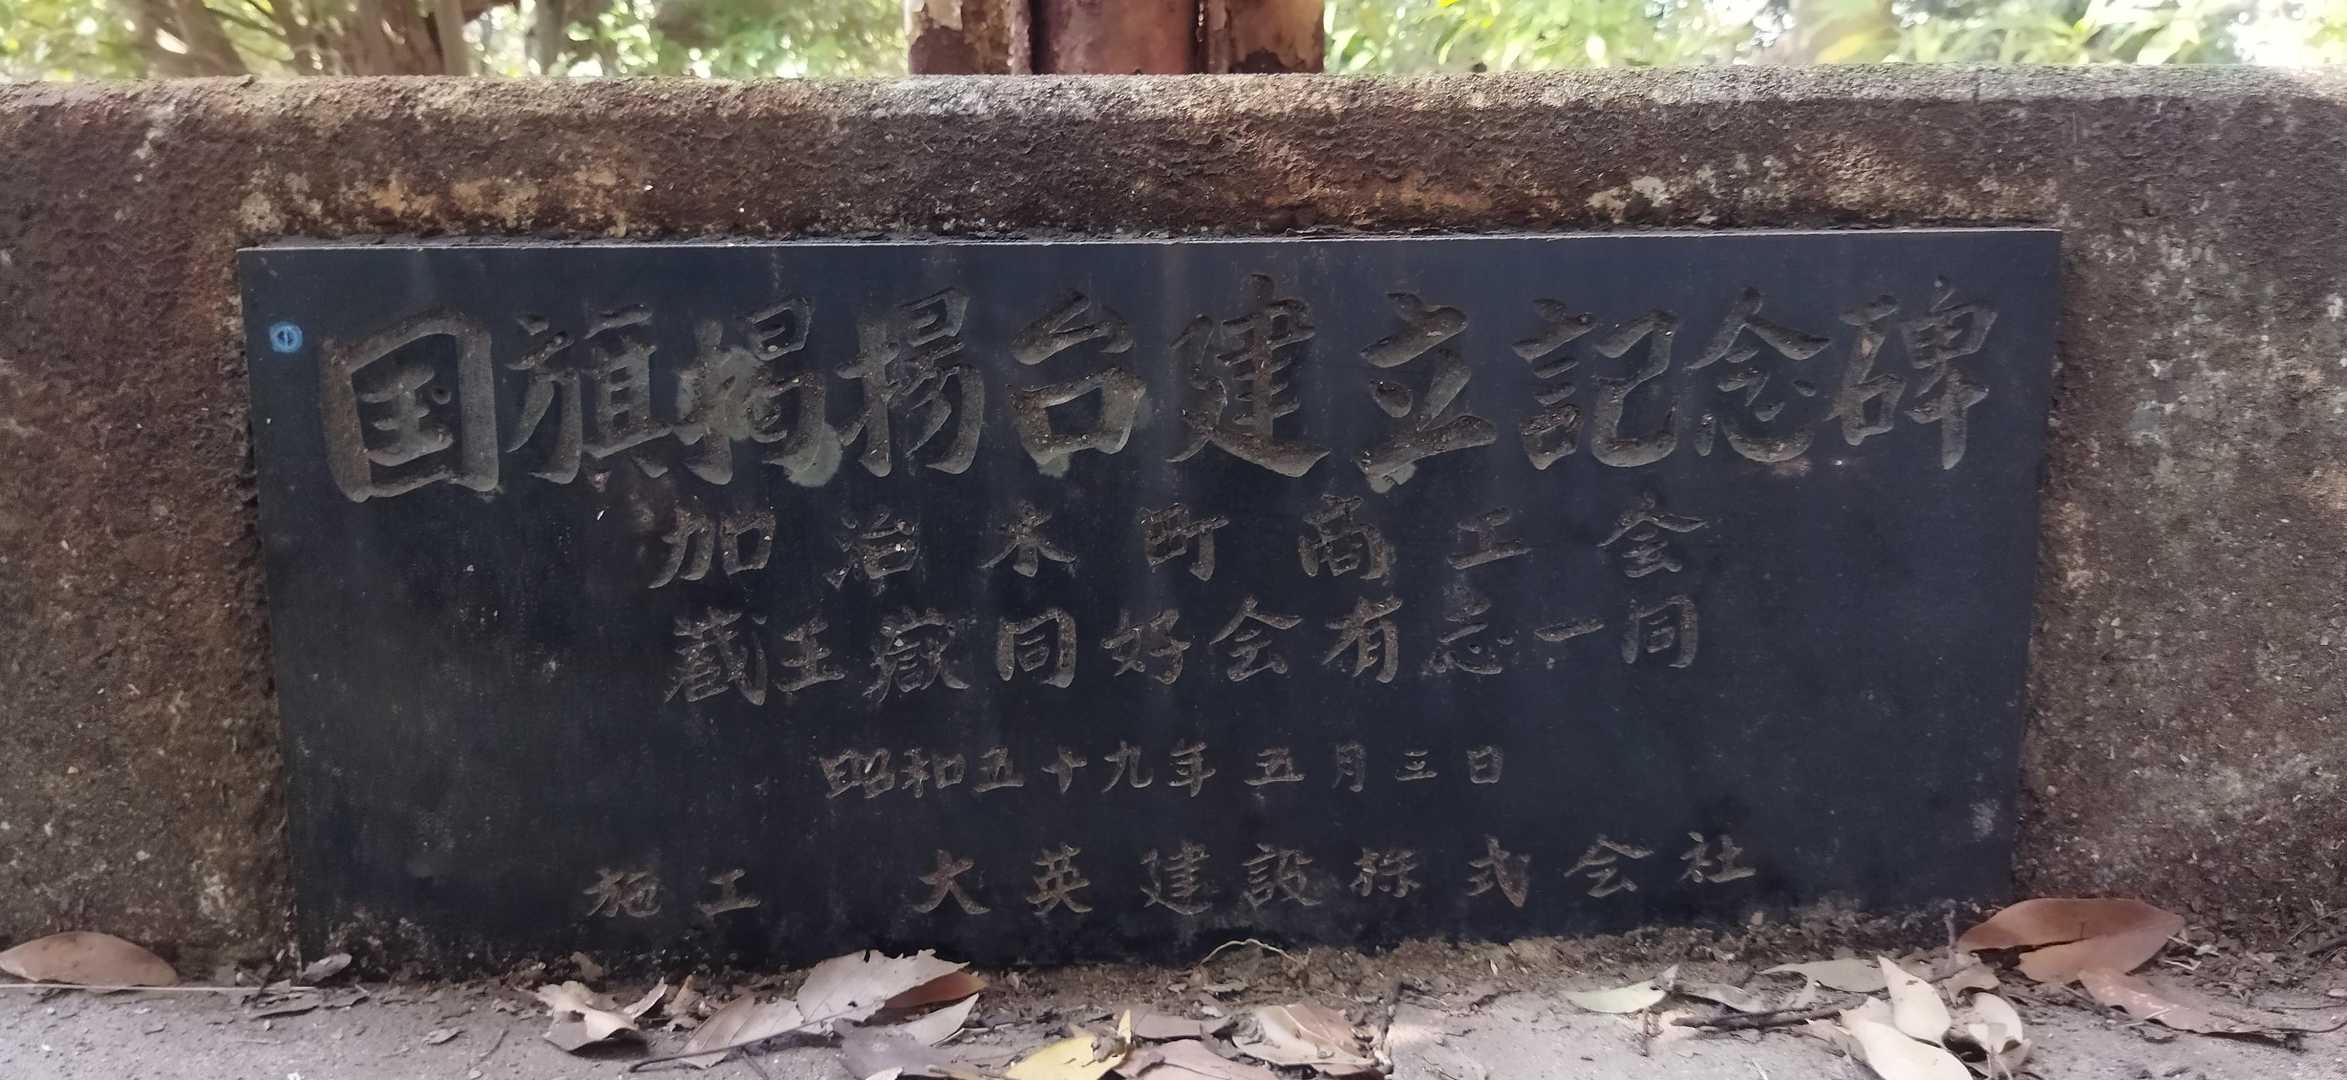 国旗掲揚台建立記念碑
加治木町商工会
蔵王嶽同好会有志一同
昭和五十九年五月三日
施工 大英建設株式会社